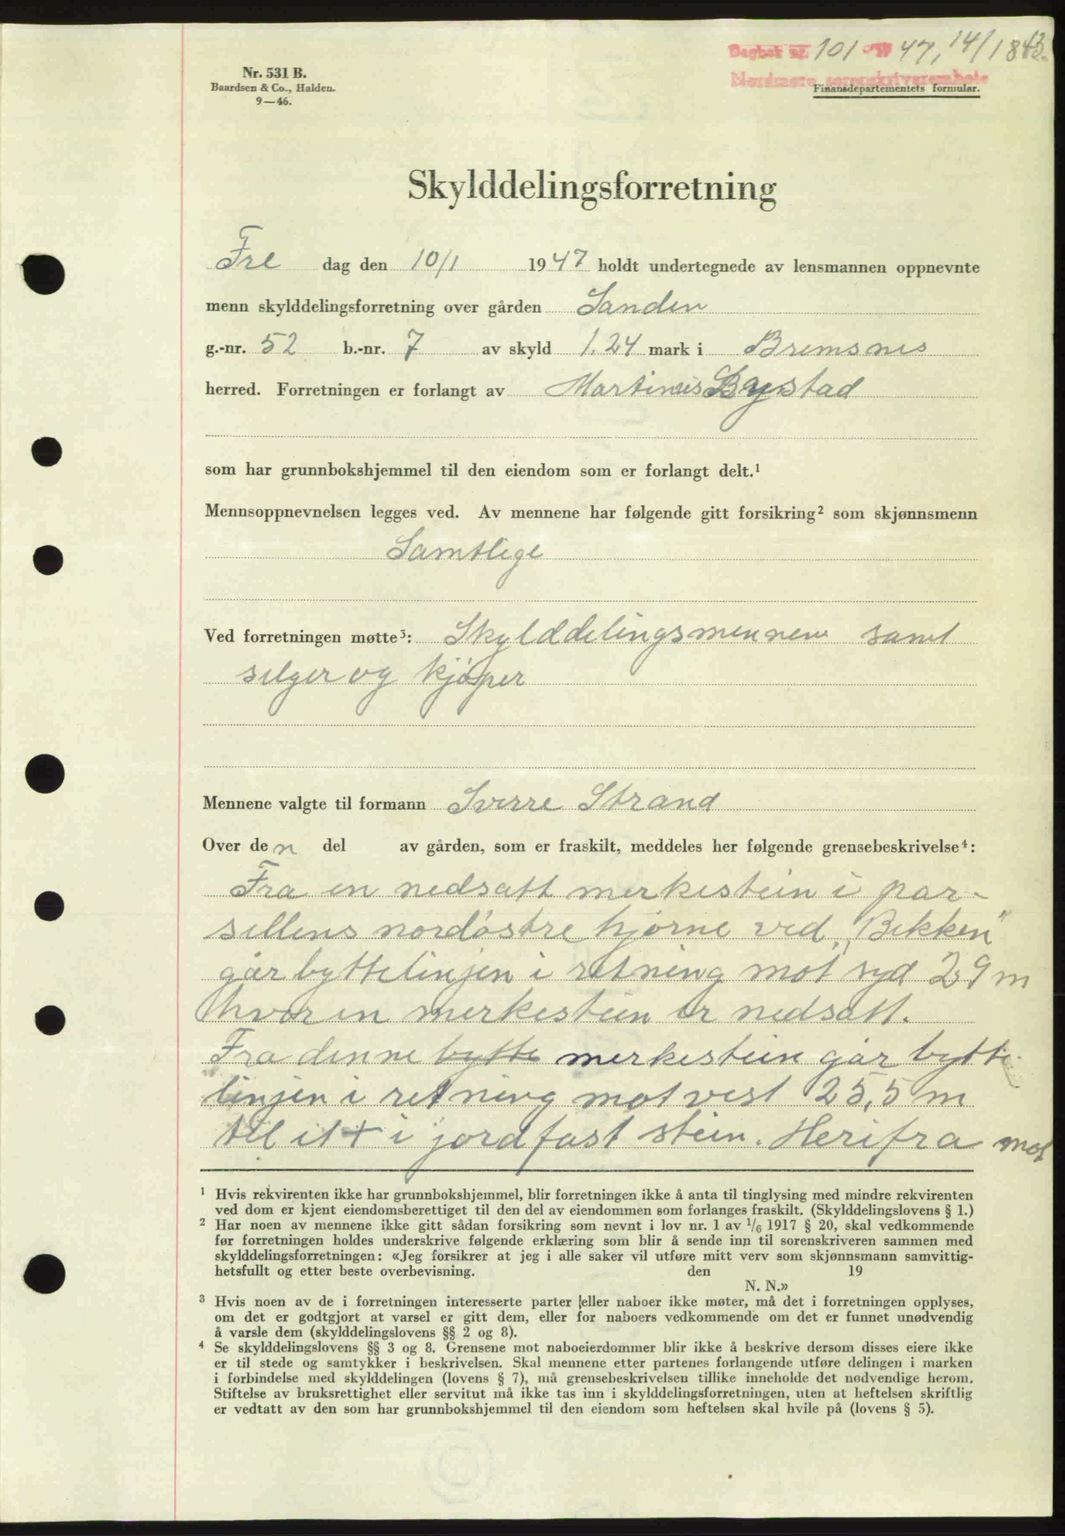 Dagbok nr. 101 - 1947, 14/1 1843.
Nordmøre sorenskriverembete
Nr. 531 B.
Baardsen & Co., Halden.
9—46.
Finansdepartementets formular.
Skylddelingsforretning
Fre dag den 10/1 1947 holdt undertegnede av lensmannen oppnevnte
menn skylddelingsforretning over gården Sanden
g.-nr. 52 b.-nr. 7 av skyld 1.24 mark i Bremsnes
herred. Forretningen er forlangt av Martinus Bystad
som har grunnbokshjemmel til den eiendom som er forlangt delt.¹
Mennsoppnevnelsen legges ved. Av mennene har følgende gitt forsikring² som skjønnsmenn
Samtlige
Ved forretningen møtte³: Skylddelingsmennene samt
selger og kjøper
Mennene valgte til formann Sverre Strand
Over den del av gården, som er fraskilt, meddeles her følgende grensebeskrivelse⁴:
Fra en nedsatt merkestein i par-
sellens nordøstre hjørne ved „Bekken"
går byttelinjen i retning mot syd 29 m
hvor en merkestein er nedsatt.
Fra denne bytte merkestein går bytte-
linjen i retning mot vest 25,5 m
til et + i jordfast stein. Herifra mot
¹ Hvis rekvirenten ikke har grunnbokshjemmel, blir forretningen ikke å anta til tinglysing med mindre rekvirenten
ved dom er kjent eiendomsberettiget til den del av eiendommen som forlanges fraskilt. (Skylddelingslovens § 1.)
² Har noen av mennene ikke gitt sådan forsikring som nevnt i lov nr. 1 av 1/6 1917 § 20, skal vedkommende
før forretningen holdes underskrive følgende erklæring som blir å sende inn til sorenskriveren sammen med
skylddelingsforretningen: «Jeg forsikrer at jeg i alle saker vil utføre mitt verv som skjønnsmann samvittig-
hetsfullt og etter beste overbevisning. den 19
N. N.»
³ Hvis noen av de i forretningen interesserte parter eller naboer ikke møter, må det i forretningen opplyses,
om det er godtgjort at varsel er gitt dem, eller for naboers vedkommende om det er funnet unødvendig
å varsle dem (skylddelingslovens §§ 2 og 8).
⁴ Se skylddelingslovens §§ 3 og 8. Grensene mot naboeierdommer blir ikke å beskrive dersom disses eiere ikke
er til stede og samtykker i beskrivelsen. Skal mennene etter partenes forlangende utføre delingen i marken
i forbindelse med skylddelingen (lovens § 7), må grensebeskrivelsen tillike inneholde det nødvendige herom.
Stiftelse av bruksrettighet eller servitut må ikke tas inn i skylddelingsforretningen, uten at heftelsen skriftlig
er vedtatt av den som har grunnbokshjemmel til den eiendom som heftelsen skal hvile på (lovens § 5).